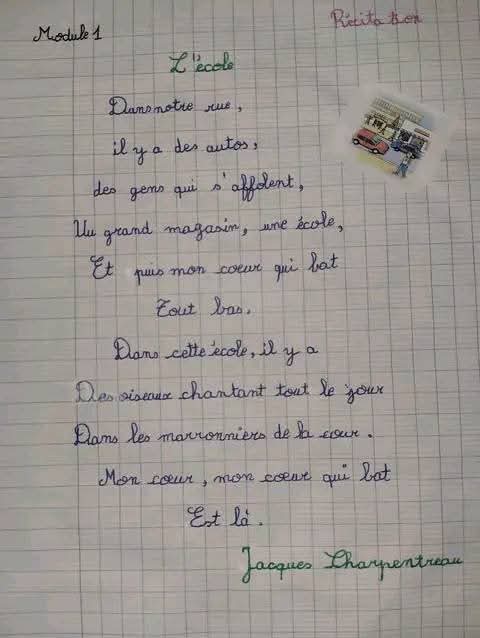 Module 1
Récitation
L'école
Dans notre rue,
il y a des autos,
des gens qui s'affolent,
Un grand magasin, une école,
Et puis mon coeur qui bat
Tout bas.
Dans cette école, il y a
Des oiseaux chantant tout le jour
Dans les marronniers de la cour.
Mon coeur, mon coeur qui bat
Est là.
Jacques Charpentreau